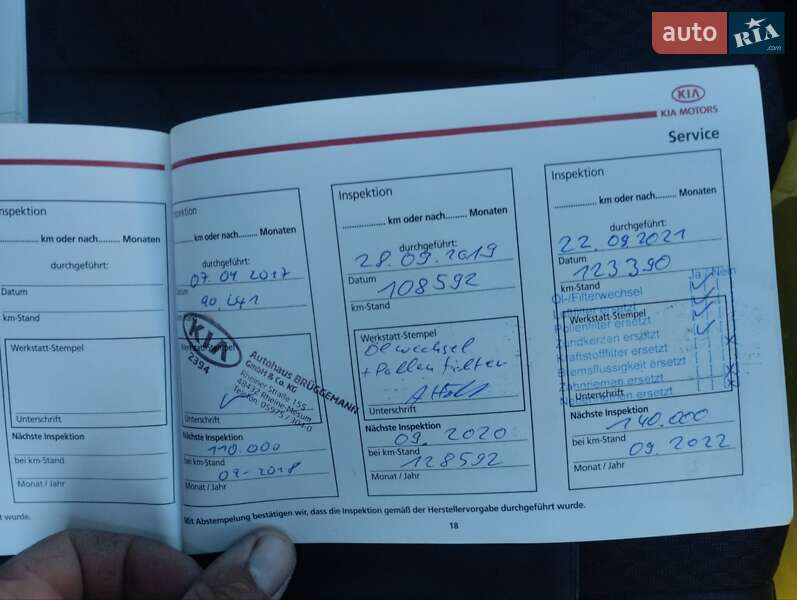 auto RIA .com
KIA
KIA MOTORS
Service
nspektion
km oder nach Monaten
durchgeführt:
Datum
km-Stand
Werkstatt-Stempel
Unterschrift
Nächste Inspektion
bei km-Stand
Monat / Jahr
t wurde.
nspektion
km oder nach Monaten
durchgeführt:
Datum
km-Stand
KIA
2394
Autohaus BRÜGGEMANN
GmbH & Co. KG
Rheiner Straße 155
48432 Rheine-Mesum
Telefon: 05975 / 304-0
Unterschrift
Nächste Inspektion
110.000
bei km-Stand
Monat / Jahr
Inspektion
km oder nach Monaten
durchgeführt:
28.09.2019
Datum
108592
km-Stand
Werkstatt-Stempel
Ölwechsel
+ Pollenfilter
Unterschrift
Nächste Inspektion
09. 2020
bei km-Stand
128592
Monat / Jahr
Inspektion
km oder nach Monaten
durchgeführt:
22.09.2021
Datum
123390
km-Stand
Ja / Nein
Öl-/Filterwechsel
Werkstatt-Stempel
Pollenfilter ersetzt
Zündkerzen ersetzt
Kraftstofffilter ersetzt
Bremsflüssigkeit ersetzt
Zahnriemen ersetzt
Unterschrift
Nächste Inspektion
140.000
bei km-Stand
09 2022
Monat / Jahr
Mit Abstempelung bestätigen wir, dass die Inspektion gemäß der Herstellervorgabe durchgeführt wurde.
18